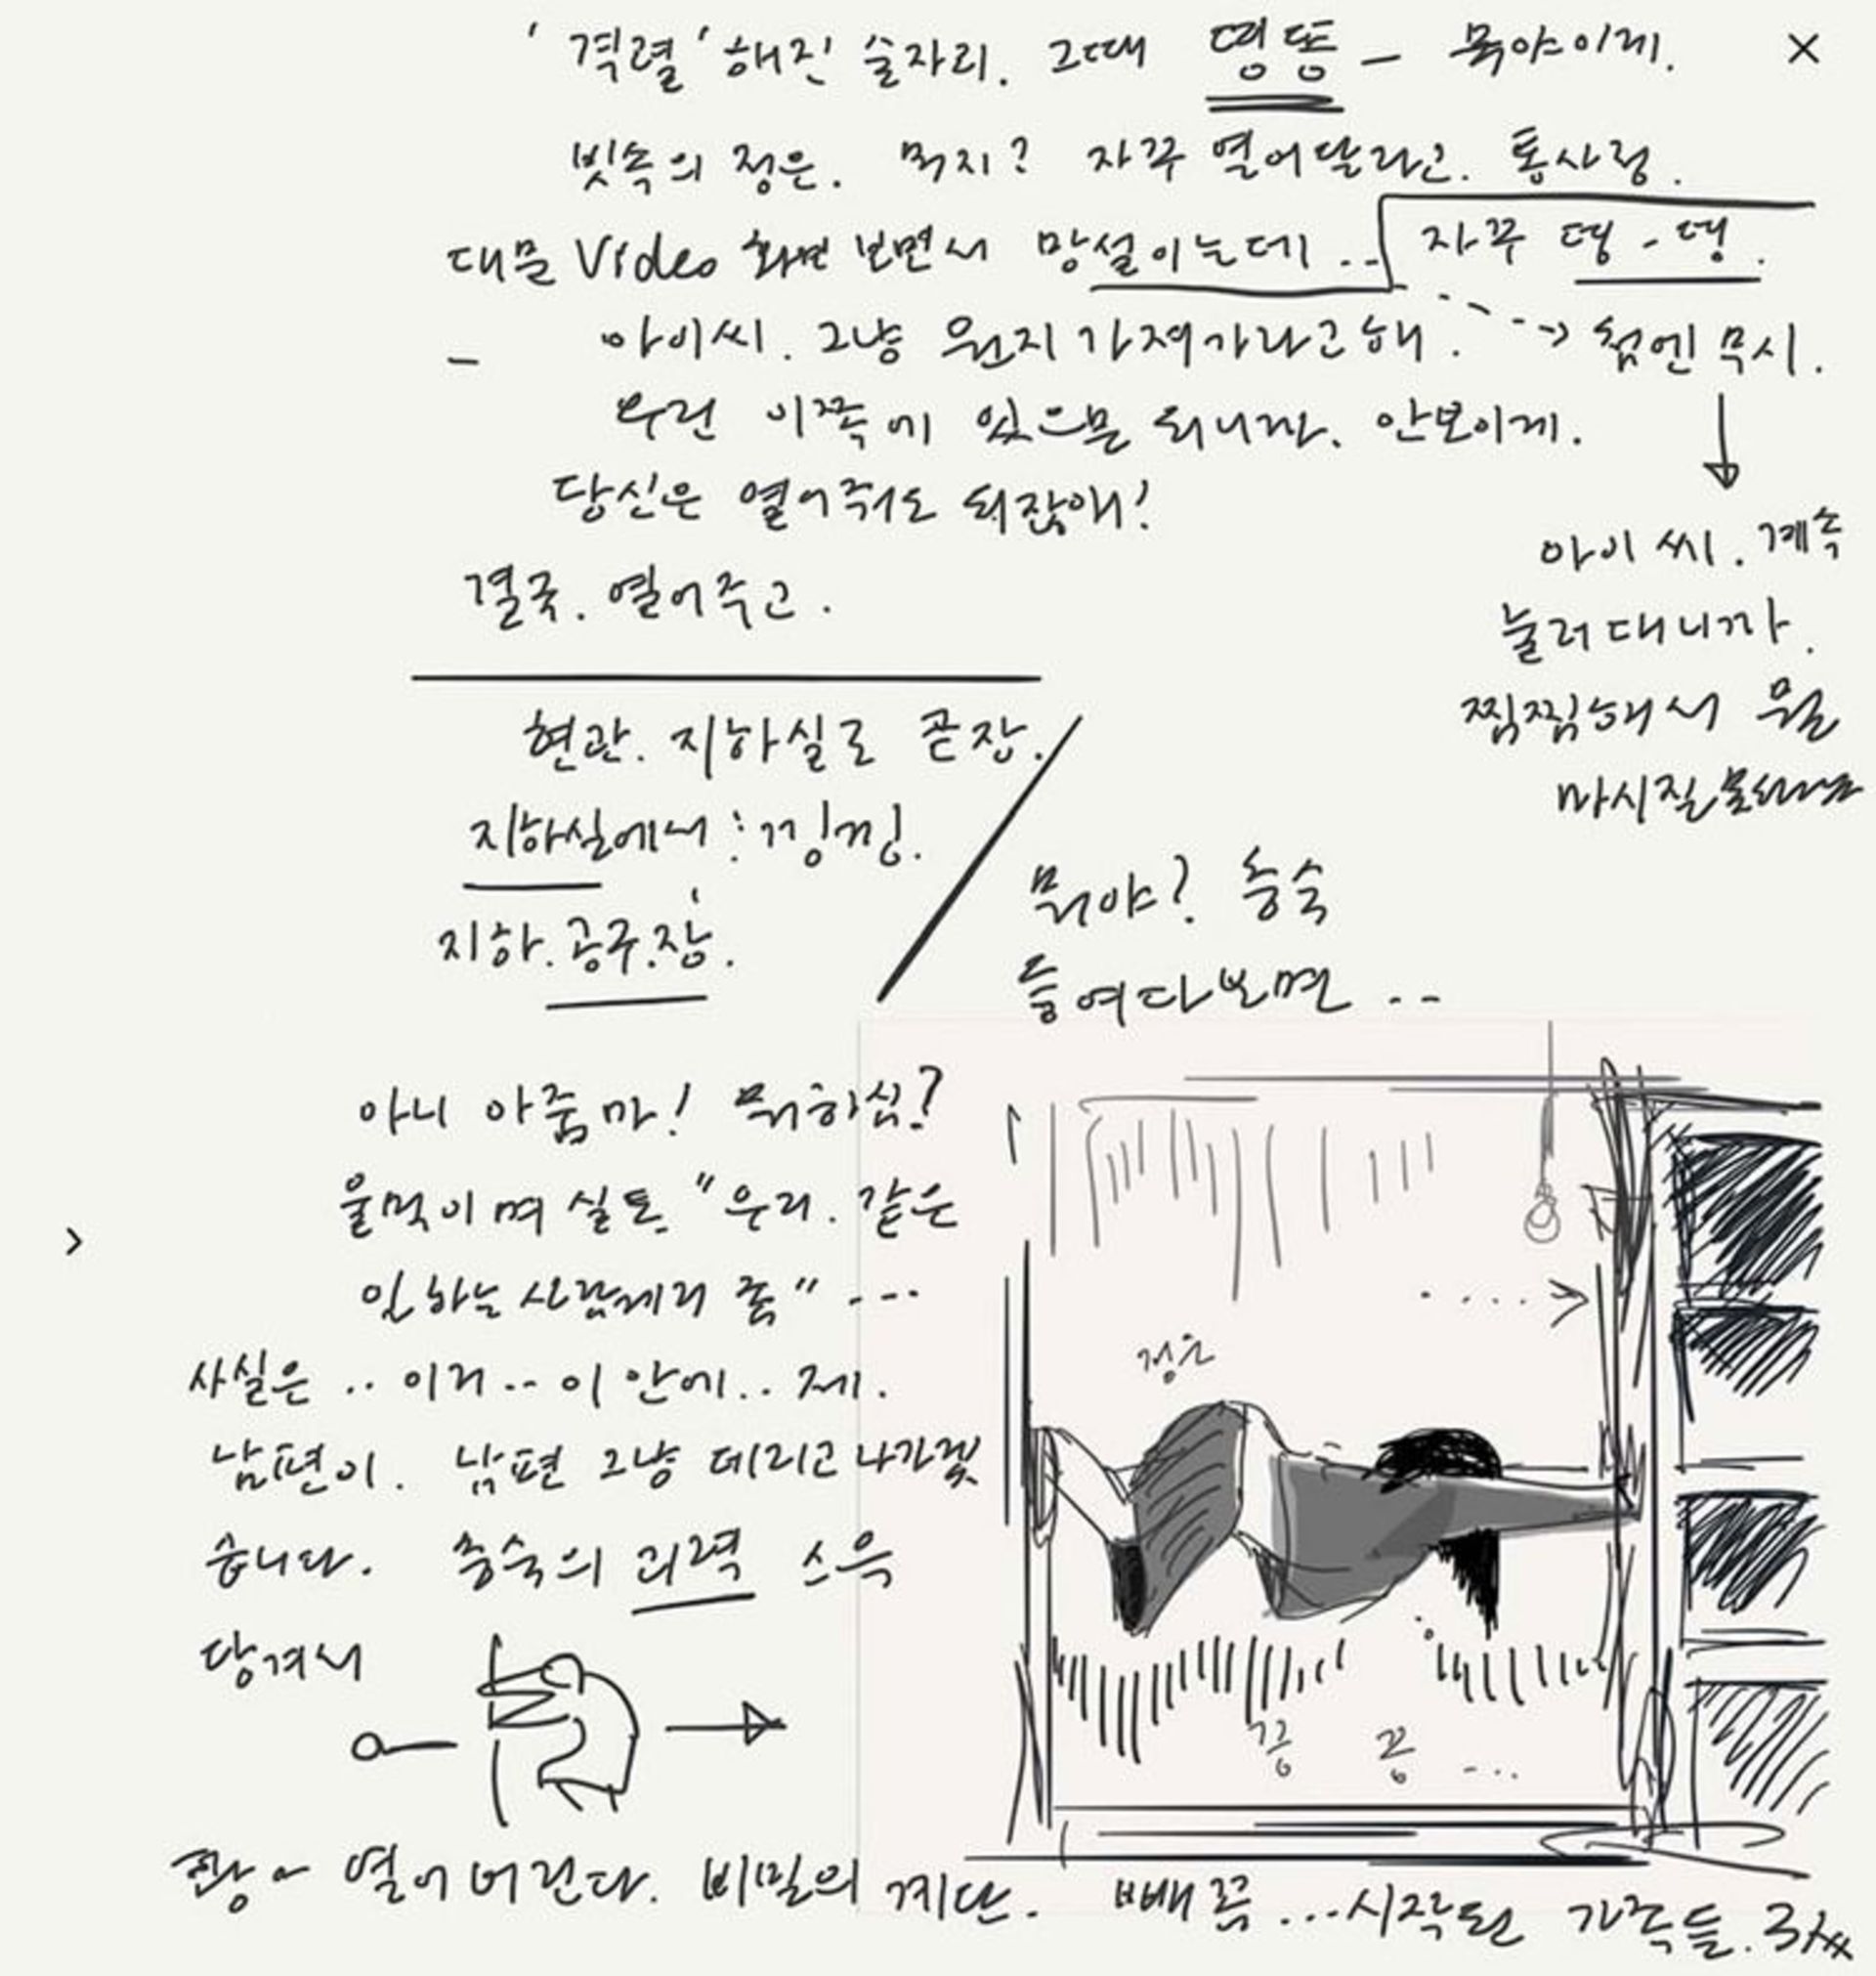 '격렬'해진 술자리. 그때 띵똥 - 뭐야이게.
빗속의 정은. 뭐지? 자꾸 열어달라고. 통사정.
대문 Video 화면 보면서 망설이는데... 자꾸 띵-띵.
- 아이씨. 그냥 뭔지 가져가라고해. ---> 첨엔 무시.
우린 이쪽에 있으믄 되니까. 안보이게.
당신은 열어줘도 되잖애!
결국. 열어주고.
아이 씨. 계속
눌러대니까.
찜찜해서 뭘
마시질
현관. 지하실로 곧장.
지하실에서 : 낑낑.
지하. 공주.장.
뭐야? 충숙
들여다보면 ..
아니 아줌마! 뭐하심?
울먹이며 실토. "우리. 같은
일하는 사람끼리 좀" ---
사실은 .. 이거.. 이 안에.. 제.
남편이. 남편 그냥 데리고 나가겠
습니다. 충숙의 괴력 스윽
당겨서
정은
끙 끙 ...
쾅~ 열어버린다. 비밀의 계단. 빼꼼...시작된 가족들.